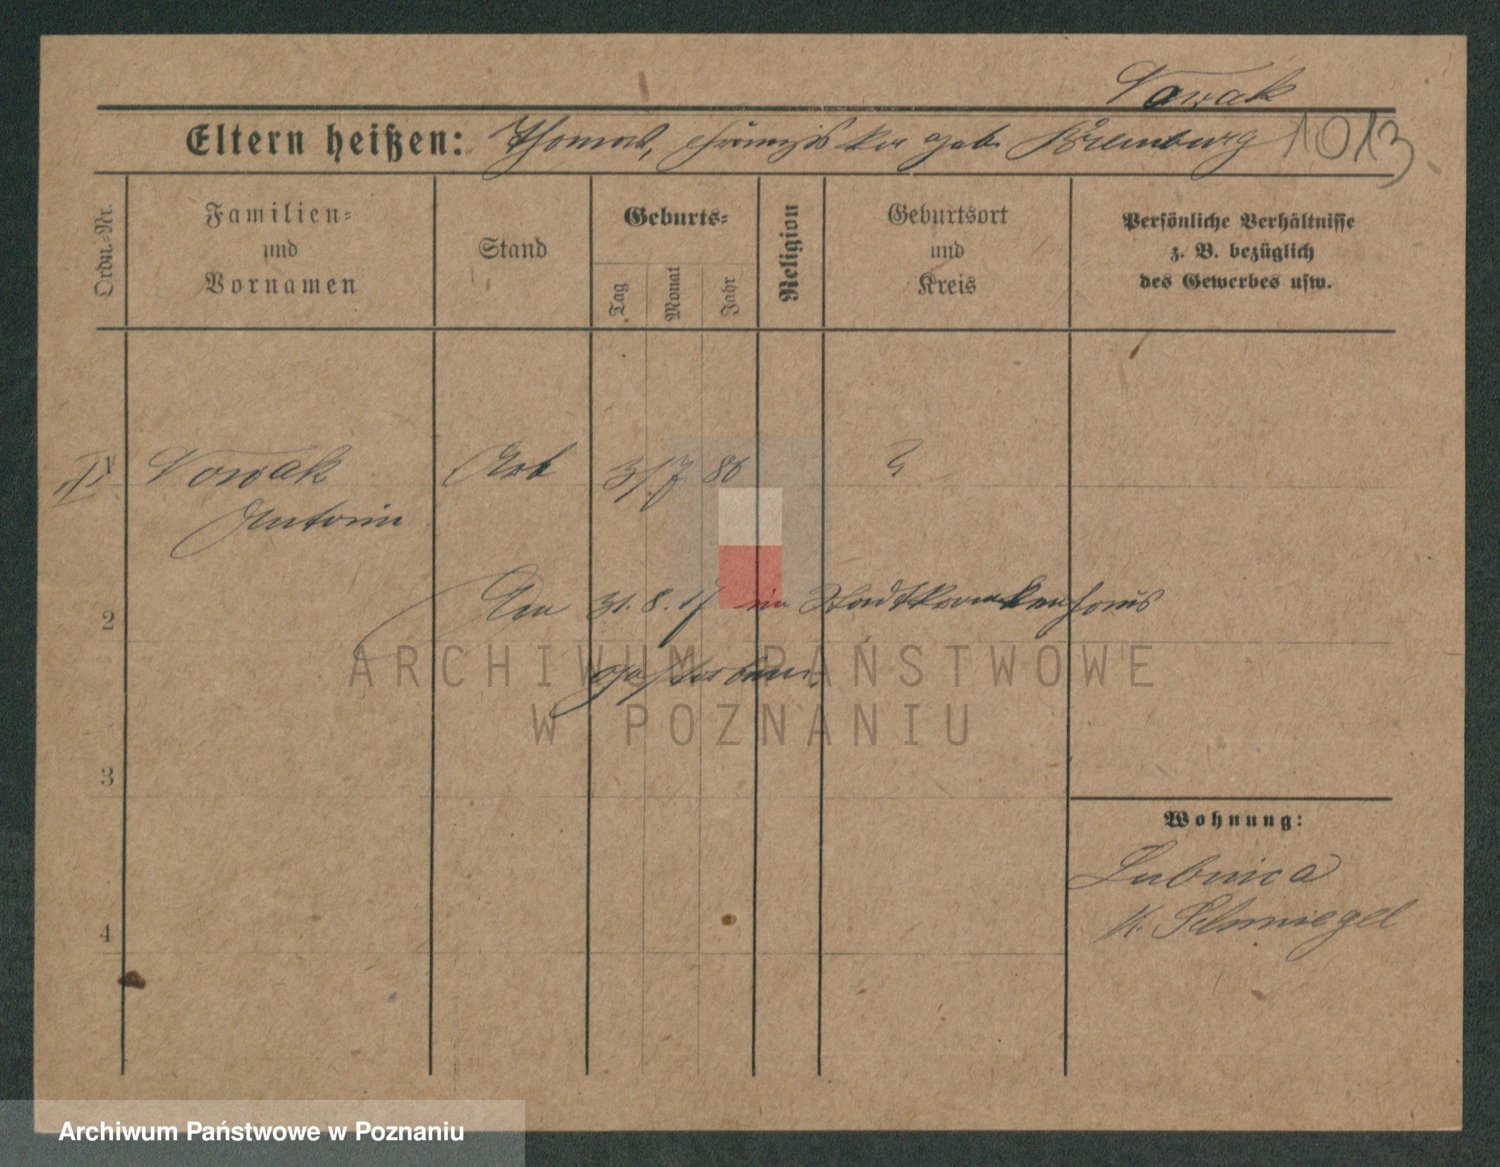 Nowak
Eltern heißen: Thomas, Franziska geb. 1013
Ordn.-Nr.
Familien-
und
Vornamen
Stand
Geburts-
Tag
Monat
Jahr
Religion
Geburtsort
und
Kreis
Persönliche Verhältnisse
z. B. bezüglich
des Gewerbes usw.
1
Nowak
Arb
31/7 86
?
Antonin
2
Am 31.8.17 im Stadtkrankenhaus
gestorben.
3
4
Wohnung:
Lubnica
K. Schmiegel
ARCHIWUM PAŃSTWOWE
W POZNANIU
Archiwum Państwowe w Poznaniu